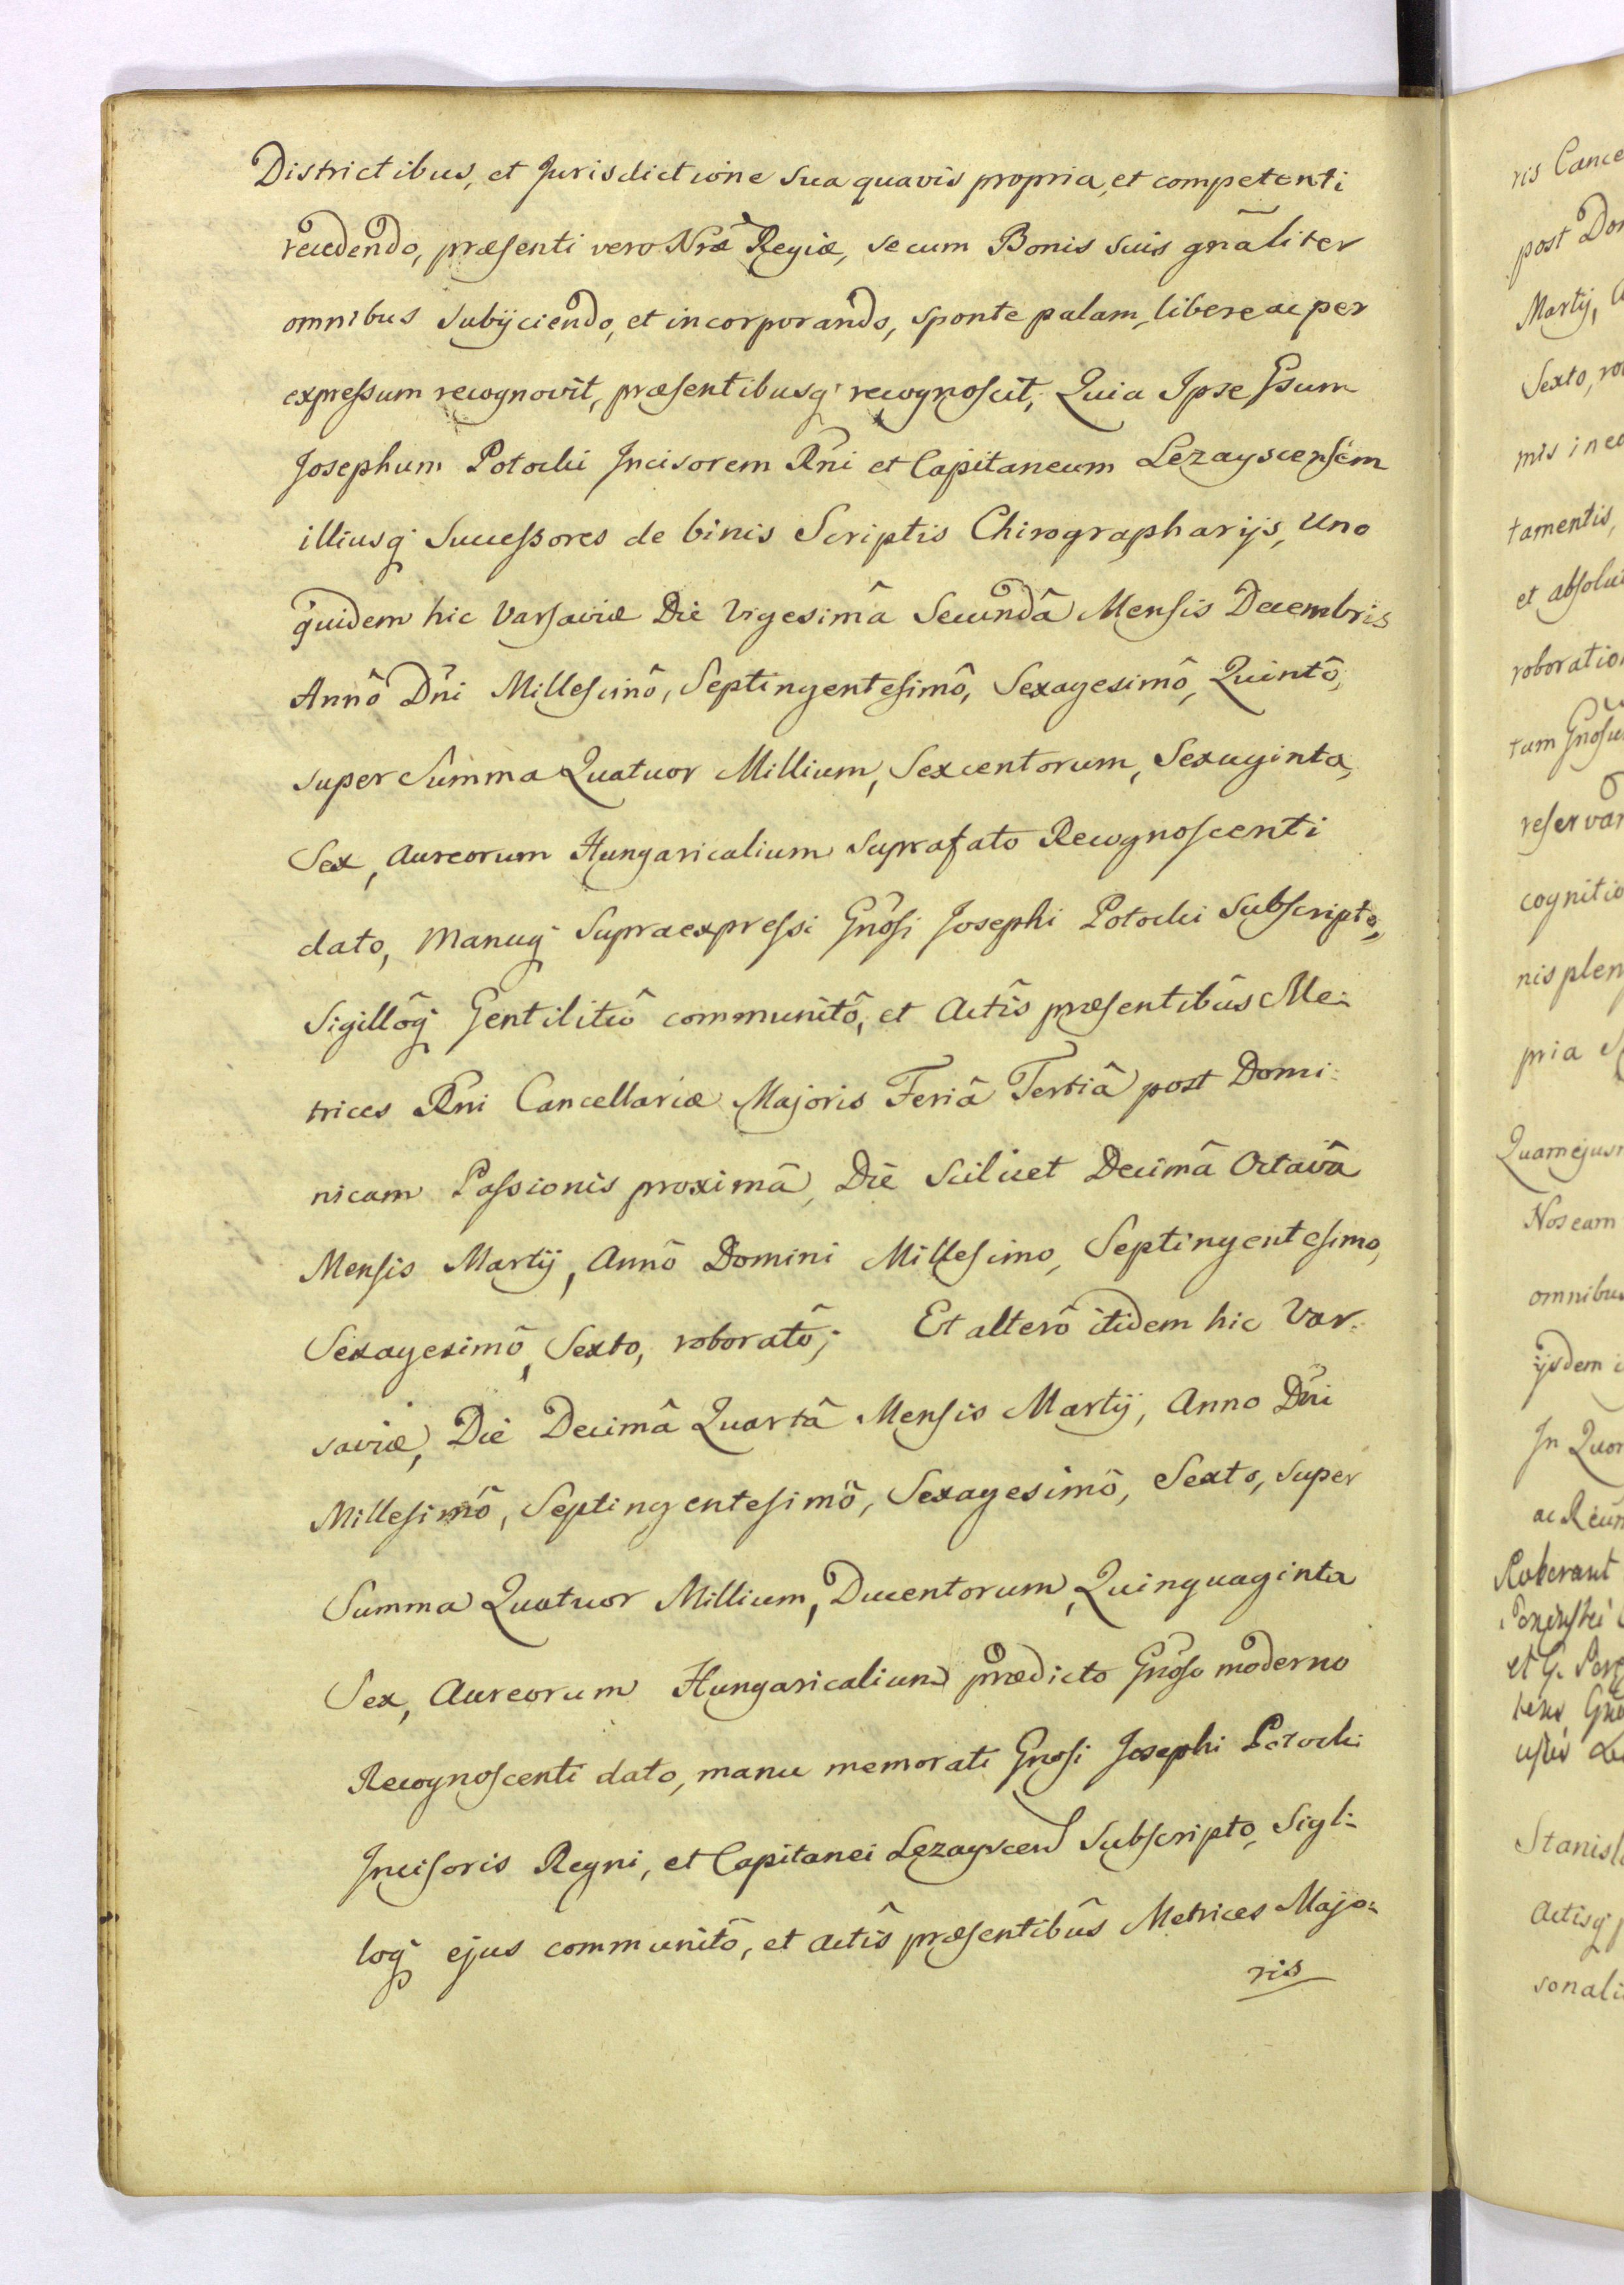 Districtibus, et Jurisdictione sua quavis propria, et competenti
recedendo, præsenti vero Nræ Regiæ, se cum Bonis suis gnãliter
omnibus subijciendo, et incorporando, sponte palam, libere ac per
expressum recognovit, præsentibusq recognoscit, Quia Ipse Gsum
Josephum Potocki Incisorem Rñi et Capitaneum Lezayscensem
illiusq Successores de binis Scriptis Chirographarijs, Uno
quidem hic Varsaviæ Die Vigesimâ Secundâ Mensis Decembris
Annô Dñi Millesimô, Septingentesimô, Sexagesimô, Quintô,
super Summa Quatuor Millium, Sexcentorum, Sexaginta,
Sex, Aureorum Hungaricalium suprafato Recognoscenti
dato, Manuq Supraexpressi Gnõsi Josephi Potocki Subscripto,
Sigillôq Gentilitiô communitô, et Actîs præsentibûs Me-
trices Rñi Cancellariæ Majoris Feriâ Tertiâ post Domi-
nicam Passionis proximâ, Die Scilicet Decimâ Octavâ
Mensis Martij, Annô Domini Millesimo, Septingentesimo,
Sexagesimô, Sexto, roboratô; Et alterô itidem hic Var-
saviæ, Die Decimâ Quartâ Mensis Martij, Anno Dñi
Millesimô, Septingentesimô, Sexagesimô, Sexto, super
Summa Quatuor Millium, Ducentorum, Quinquaginta
Sex, Aureorum Hungaricalium prædicto Gnõso moderno
Recognoscenti dato, manu memorati Gnosi Josephi Potocki
Incisoris Regni, et Capitanei Lezayscen Subscripto, Sigli-
loq ejus communitô, et actîs præsentibûs Metrices Majo-
ris
ris Cance
post Do
Martij,
Sexto, ro
mis in ea
tamentis,
et absolu
roboratio
tum Gnosu
reservan
cognitio
nis plen
pria
Quam ejus
Nos eam
omnibus
ijsdem
In Quor
ac
Roberant
et G.
Stanisl
Actisq
sonali